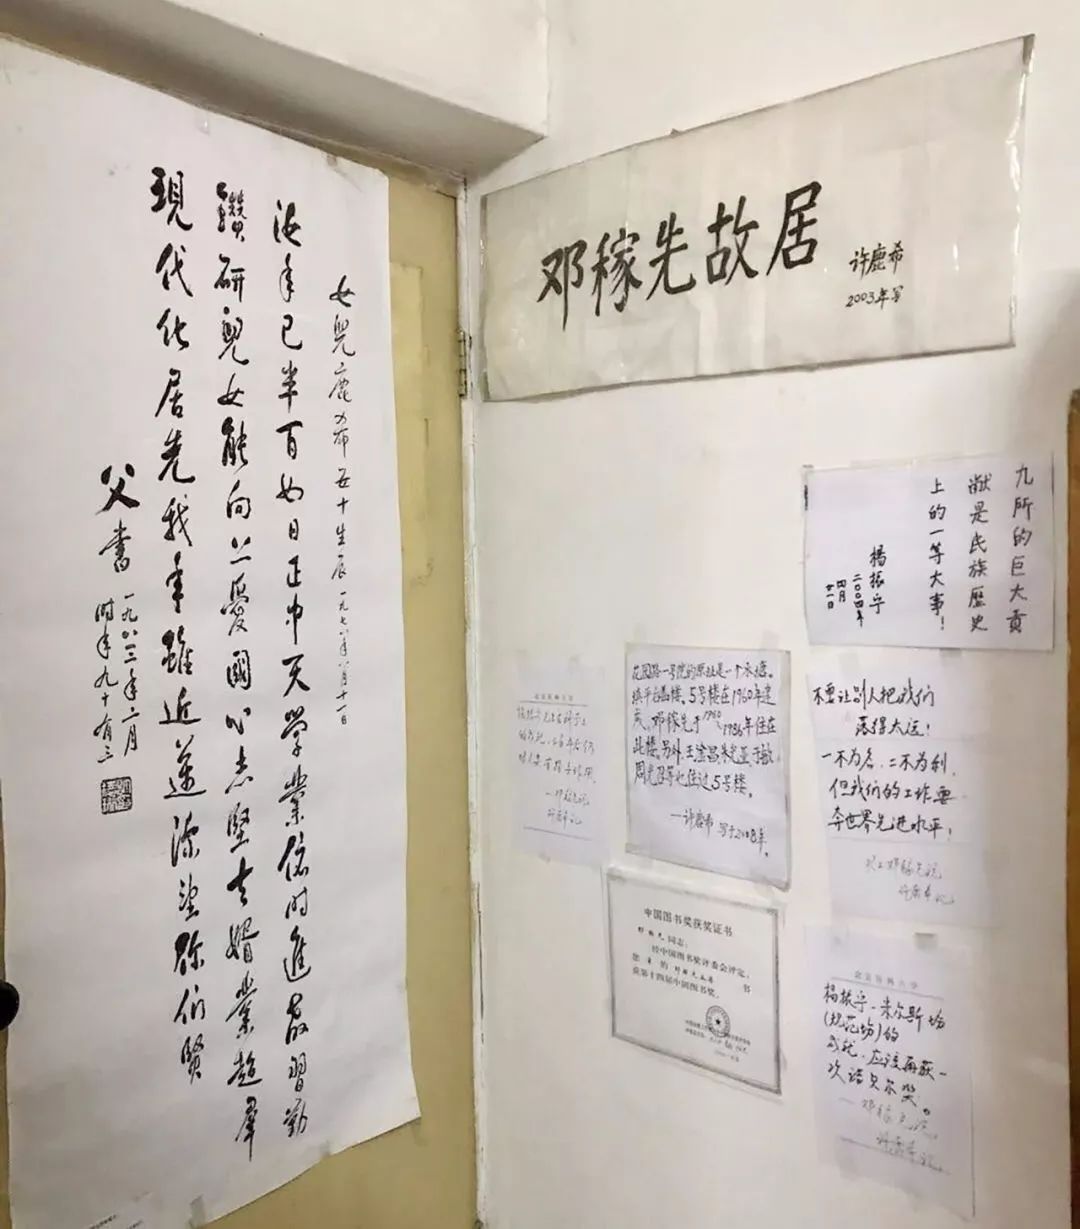 女兒鹿希五十生辰 一九七八年八月十一日
年已半百如日正中天學業隨時進教習勤
鑽研兒女能向上愛國心志堅夫婿業超群
現代化居先我年雖近遲深望你们賢
父書
一九八三年二月
時年九十有三
邓稼先故居
许鹿希
2003年写
九所的巨大貢
献是民族歷史
上的一等大事!
楊振宁
二〇〇四年
四月
廿一日
花园路一号院的原址是一个水塘。
填平后盖楼。5号楼在1960年建
成。邓稼先于1960~1986年住在
此楼。另外,王淦昌、朱光亚、于敏、
周光召等也住过5号楼。
——许鹿希 写于2008年。
不要让别人把我们
落得太远!
一不为名,二不为利,
但我们的工作要
奔世界先进水平!
邓稼先说
许鹿希记
中国图书奖获奖证书
邓稼先同志:
经中国图书奖评委会评定,
获第十四届中国图书奖。
北京医科大学
杨振宁-米尔斯场
(规范场)的
成就,应该再获一
次诺贝尔奖。
——邓稼先说
许鹿希记